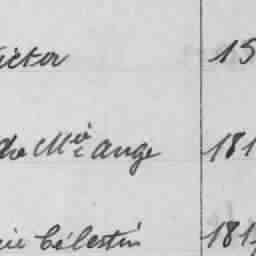 ictor 15
de Mie Ange 181
cie Célestin 181